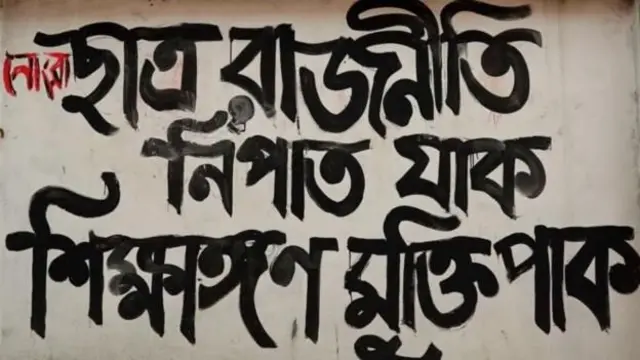 নোংরা ছাত্র রাজনীতি
নিপাত যাক
শিক্ষাঙ্গণ মুক্তি পাক